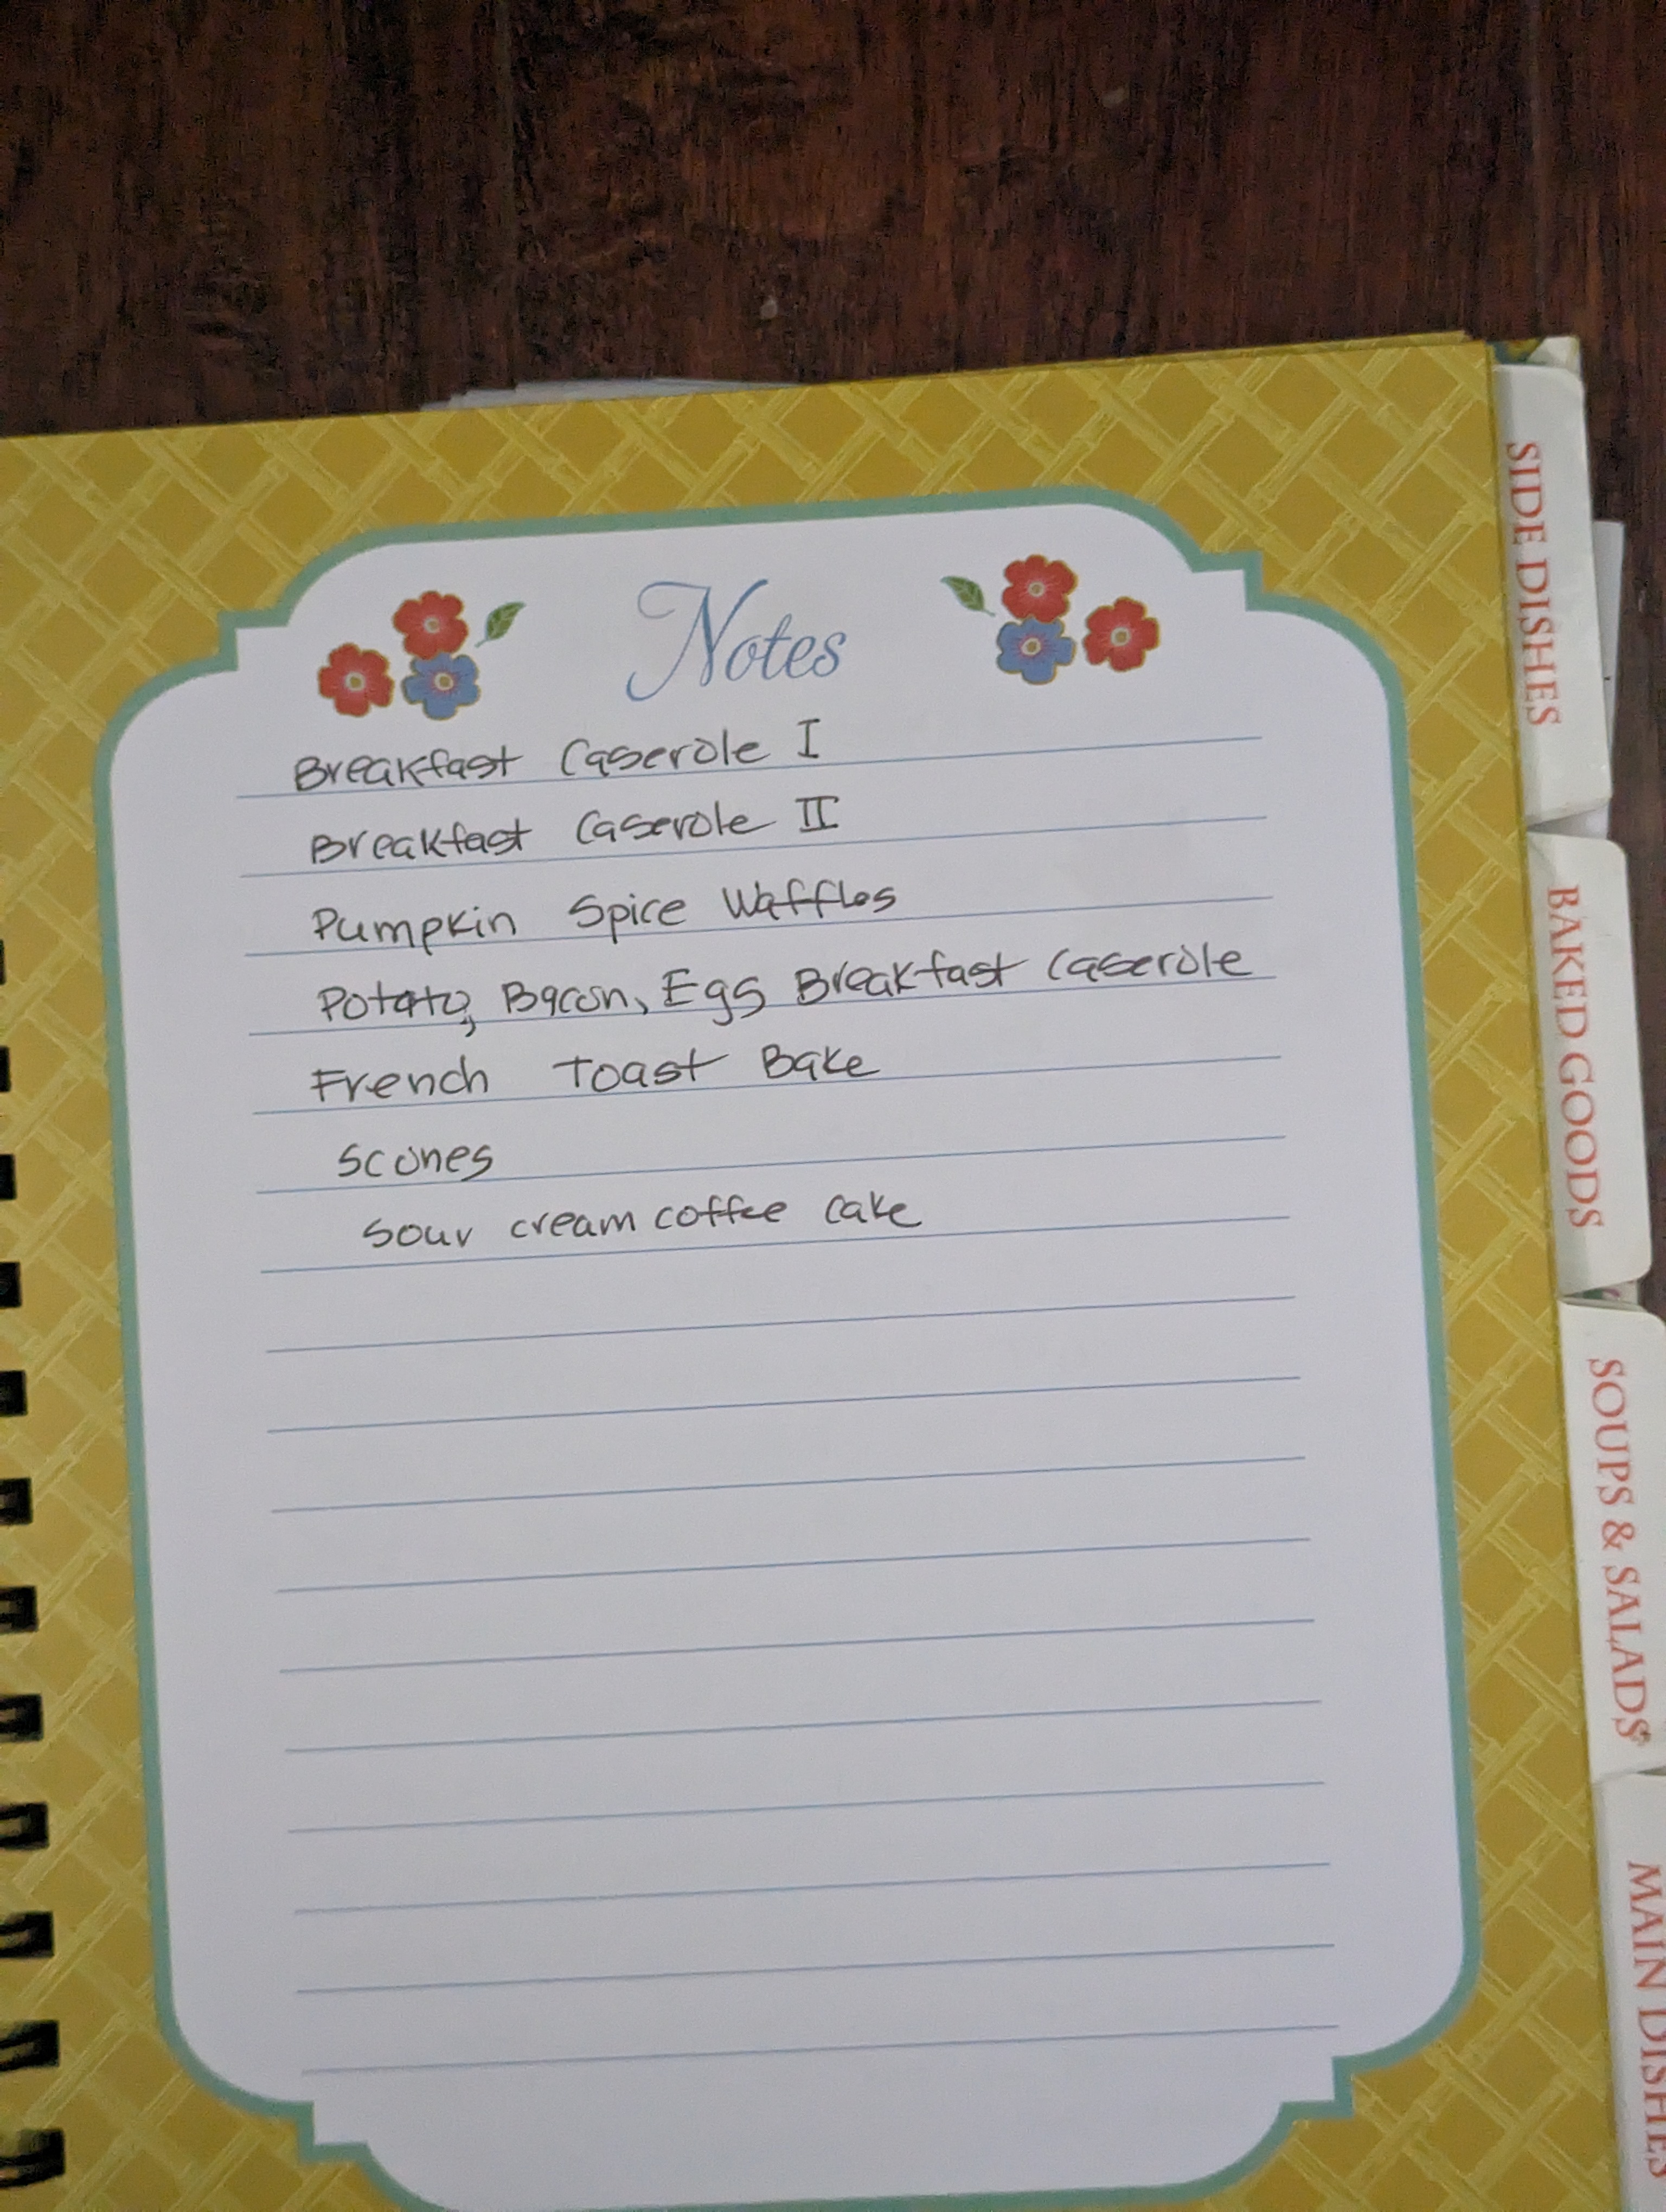 Notes
Breakfast Caserole I
Breakfast Caserole II
Pumpkin Spice Waffles
Potato, Bacon, Egg Breakfast Caserole
French Toast Bake
Scones
Sour cream coffee cake
SIDE DISHES
BAKED GOODS
SOUPS & SALADS
MAIN DISHES